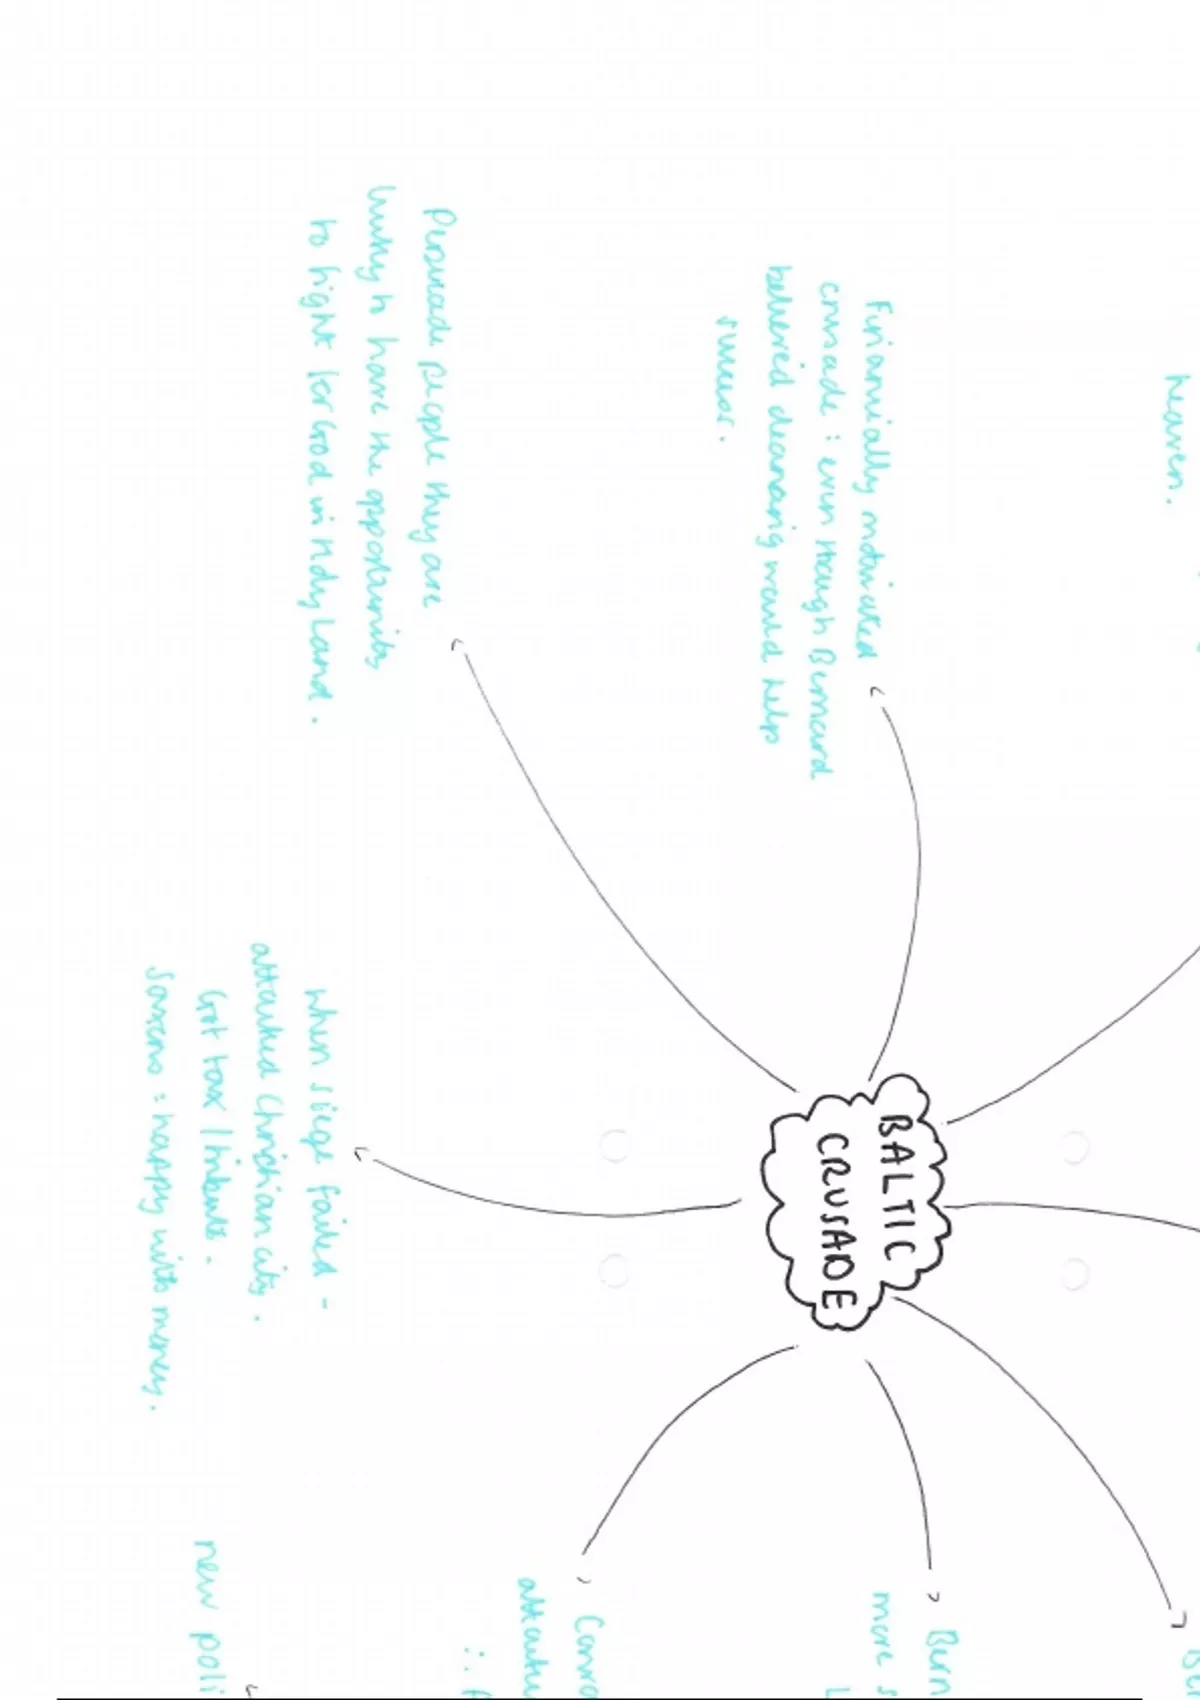 BALTIC
CRUSADE
heaven.
Financially motivated
crusade : even though Bernard
believed cleansing would help
success.
Persuade people they are
lucky to have the opportunity
to fight for God in Holy Land.
When siege failed -
attacked Christian city.
Got tax / tribute.
Saxons : happy with money.
Bern
more s
L
Conra
attacke
∴ f
new poli